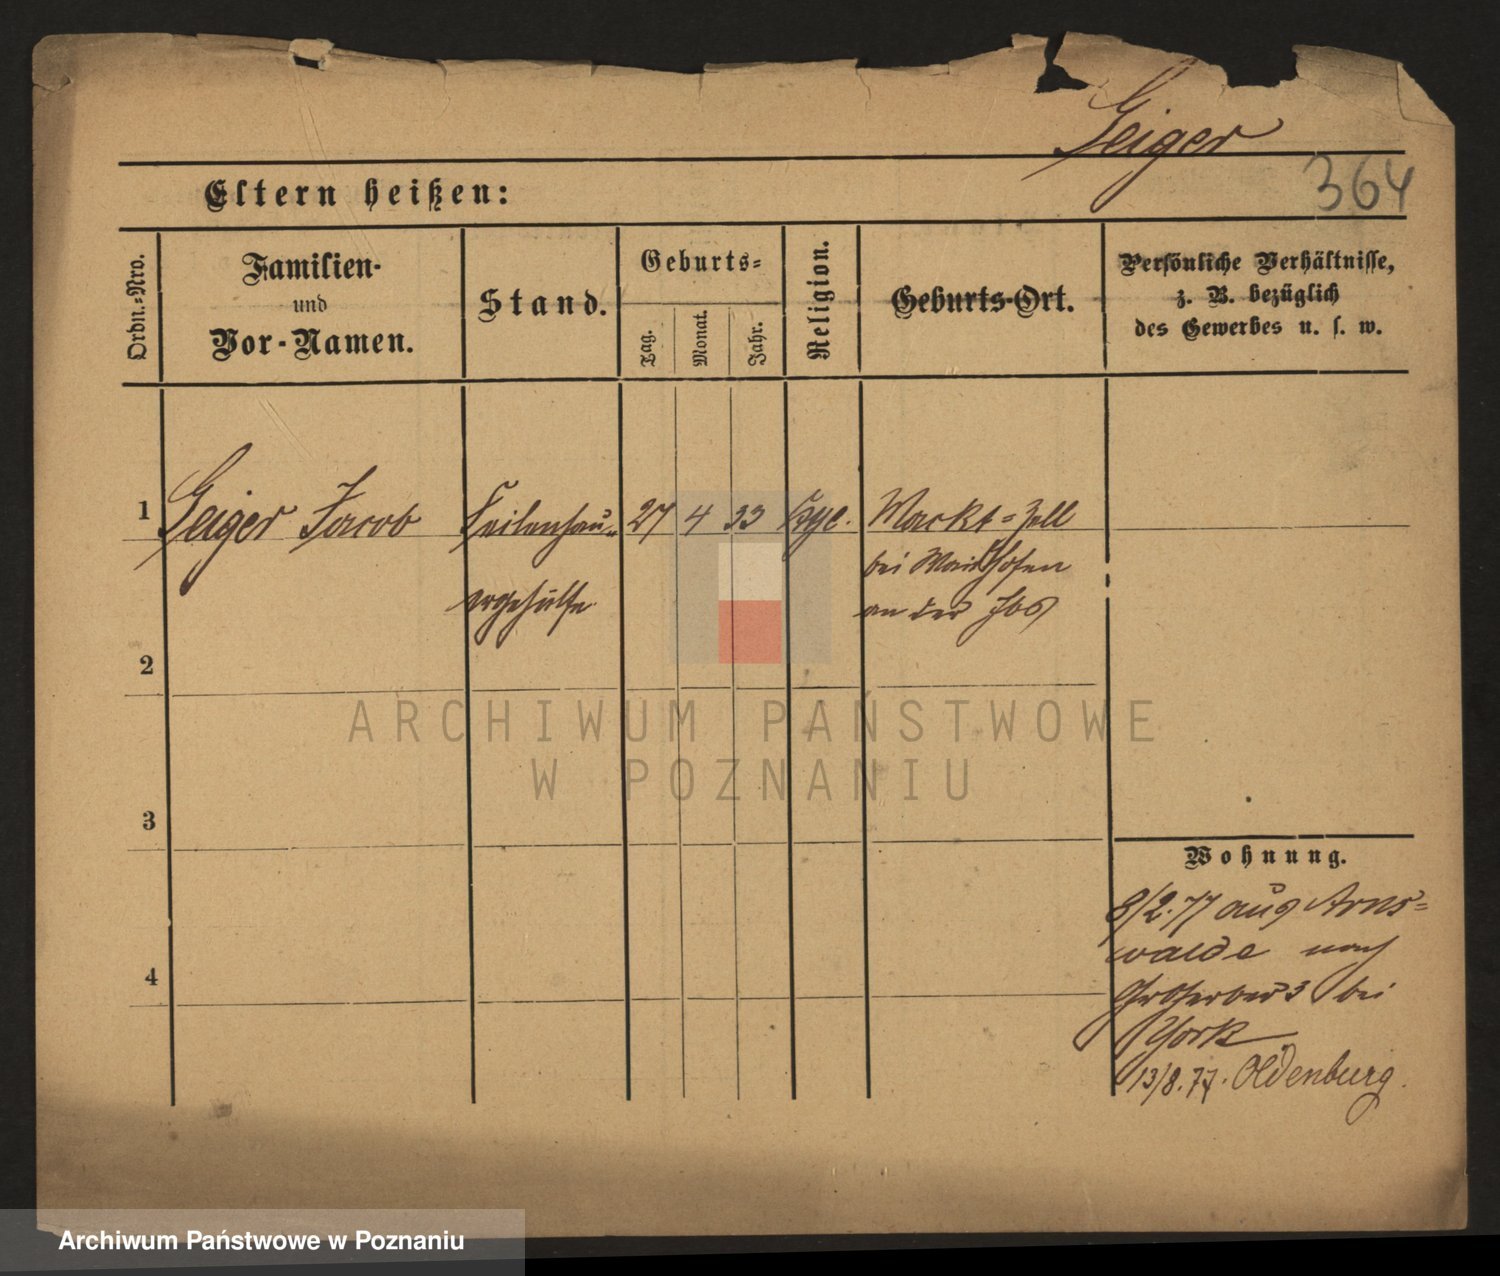 Geiger
364
Eltern heißen:
Ordn.-Nro.
Familien-
und
Vor-Namen.
Stand.
Geburts-
Tag.
Monat.
Jahr.
Religion.
Geburts-Ort.
Persönliche Verhältnisse,
z. B. bezüglich
des Gewerbes u. s. w.
1 Geiger Jacob Feilenhau- 27 4 33 Markt-Zell
bei Waidhofen
ergehülfe an der Jbs
2
ARCHIWUM PAŃSTWOWE
W POZNANIU
3
Wohnung.
8/2.77 aus Arns-
walde nach
4
Gr Gerber 3 bei
York
13/8.77. Oldenburg.
Archiwum Państwowe w Poznaniu